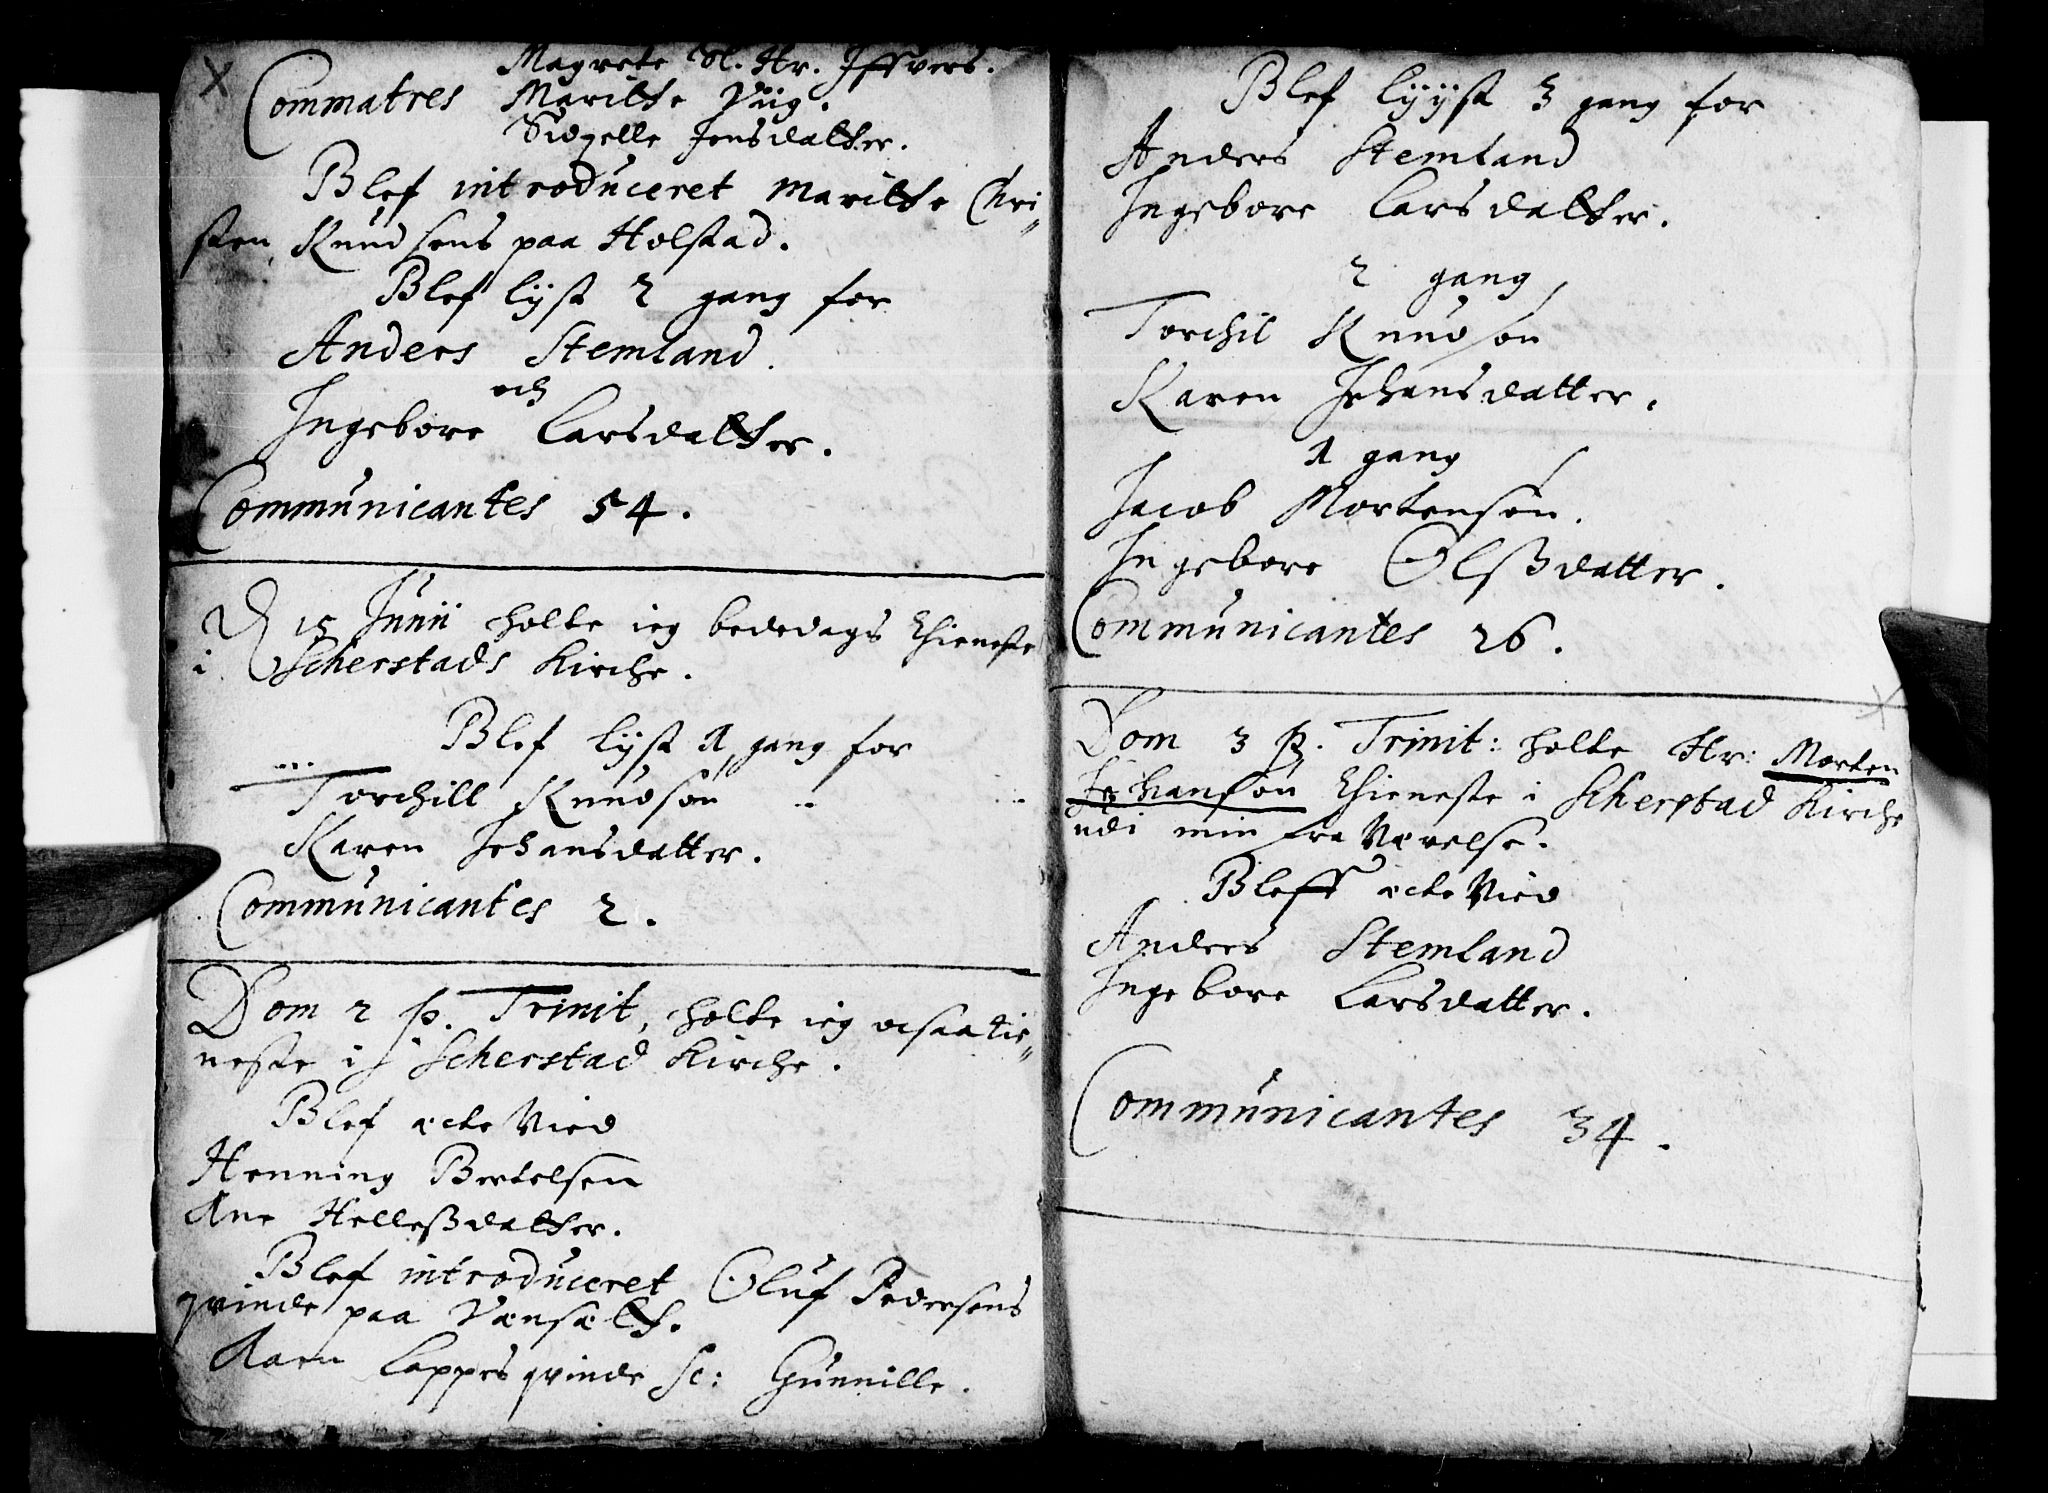 Magrete Sl. Hr. Iffvers.
Commatres Maritte Viig.
Sidzelle Jensdatter.
Blef introduceret Maritte Chri„
sten Knudsens paa Holstad.
Blef lyst 2 gang for
Anders Stemland.
och
Ingebore Larsdatter.
Communicantes 54.
D 15 Junii holte ieg bededags thieneste
i Scherstads Kirche.
Blef lyst 1 gang for
Torchill Knudson
Karen Johansdatter.
Communicantes 2.
Dom 2 p. Trinit, holte ieg ocsaa tie„
neste i Scherstad Kirche.
Blef ecte Vied
Henning Bertelsen
Ane Hellessdatter.
Blef introduceret Oluf Pedersens
qvinde paa
Lappes qvinde sc: Gunnille.
Blef lyyst 3 gang for
Anders Stemland
Ingebore Larsdatter.
2 gang
Torchil Knudson
Karen Johansdatter.
1 gang
Jacob Mortenson.
Ingebore Olßdatter.
Communicantes 26.
Dom 3 p. Trinit: holte Hr: Morten
Johanson thieneste i Scherstad Kirche
udi min fra Værelse.
Bleff ecte Vied
Anders Stemland
Ingebore Larsdatter.
Communicantes 34.